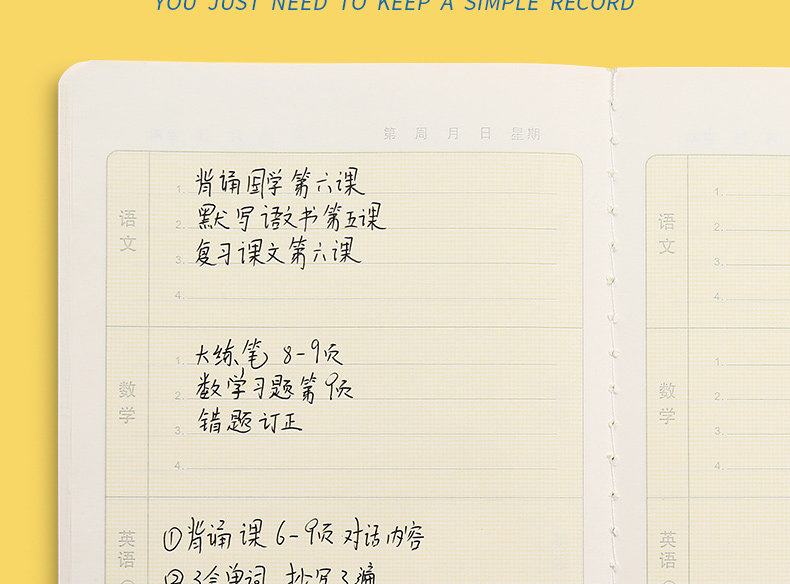 YOU JUST NEED TO KEEP A SIMPLE RECORD
第 周 月 日 星期
语文
1. 背诵国学第六课
2. 默写语文书第五课
3. 复习课文第六课
4.
数学
1. 大练笔 8-9页
2. 数学习题第9页
3. 错题订正
4.
英语
①背诵课 6-9页 对话内容
② 单词 抄写3遍
语文
1.
2.
3.
4.
数学
1.
2.
3.
4.
英语